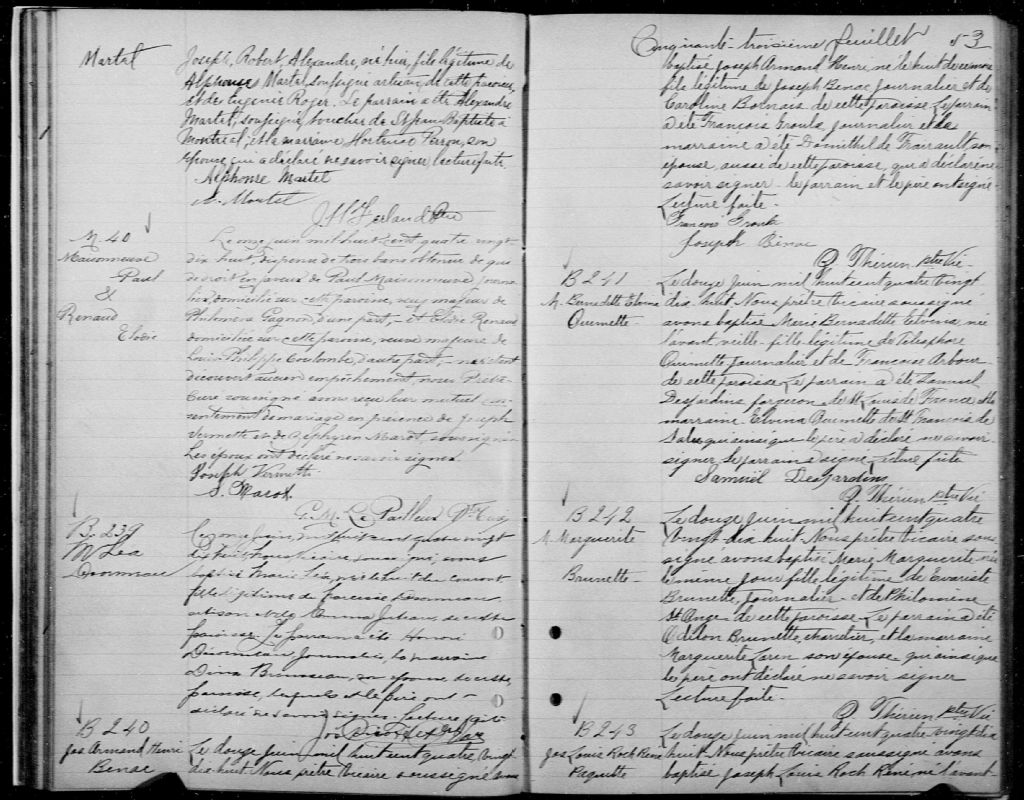 Martel
Joseph, Robert, Alexandre, né hier, fils légitime de
Alphonse Martel soussigné artisan, de cette paroisse,
et de Eugénie Roger. Le parrain a été Alexandre
Martel, soussigné, boucher de St Jean-Baptiste à
Montréal, et la marraine Hortense Perron, son
épouse, qui a déclaré ne savoir signer, lecture faite
Alphonse Martel
A. Martel
J H Ferland Ptre
M. 40
Maisonneuve
Paul
&
Renaud
Elodie
Le onze juin mil huit cent quatre vingt
dix huit, dispense de tous bans obtenue de qui
de droit en faveur de Paul Maisonneuve, journa
lier, domicilié sur cette paroisse, veuf majeur de
Philomène Gagnon, d'une part, – et Elodie Renaud
domiciliée sur cette paroisse, veuve majeure de
Louis-Philippe Coulombe, d'autre part, – n'ayant
découvert aucun empêchement, nous Prêtre
Curé soussigné avons reçu leur mutuel con-
sentement de mariage en présence de Joseph
Vermette et de Zéphyrin Marot, soussignés
Les époux ont déclaré ne savoir signer.
Joseph Vermette
S. Marot
G. M. Le Pailleur Ptre Curé
B. 239
M Lea
Le onze juin, mil huit cent quatre vingt
dix huit, nous prêtre vicaire, soussigné, avons
baptisé Marie Léa, née le huit du courant
fille légitime de
artisan et de Emma de cette
paroisse. Le parrain a été Honoré
journalier, la marraine
son épouse de cette
paroisse, lesquels et le père ont –
déclaré ne savoir signer. Lecture faite
B 240
Jos Armand Henri
Benac
Le douze juin mil huit cent quatre vingt
dix huit Nous prêtre vicaire soussigné avons
Cinquante-troisième feuillet 53
baptisé Joseph Armand Henri né le huit de ce mois
fils légitime de Joseph Benac journalier et de
Caroline de cette paroisse Le parrain
a été François Groulx journalier et la
marraine a été Domithilde son
épouse, aussi de cette paroisse, qui a déclaré ne
savoir signer – le parrain et le père ont signé –
Lecture faite –
François Groulx
Joseph Bénac
Q. Thérien ptre Vic –
B 241
M. Bernadette Elvina
Ouimette –
Le douze Juin mil huit cent quatre vingt
dix huit Nous prêtre vicaire soussigné
avons baptisé Marie Bernadette Elvina, née
l'avant-veille – fille légitime de Télesphore
Ouimette journalier et de Françoise Arbour
de cette paroisse Le parrain a été Samuel
Desjardins forgeron de St Louis de France et la
marraine Elvina Ouimette de St François de
Sales qui ainsi que le père a déclaré ne savoir
signer, le parrain a signé, Lecture faite
Samuel Desjardins
Q. Thérien ptre Vic
B 242
M. Marguerite
Brunette –
Le douze Juin mil huit cent quatre
vingt-dix huit – Nous prêtre vicaire sous-
signé avons baptisé Marie Marguerite née
le même jour fille légitime de Evariste
Brunette, journalier – et de Philomène
St Onge – de cette paroisse – Le parrain a été
Odilon Brunette, charretier, et la marraine
Marguerite son épouse – qui ainsi que
le père ont déclaré ne savoir signer
Lecture faite –
Q. Thérien ptre Vic
B 243
Jos Louis Roch René
Paquette
Le douze Juin mil huit cent quatre vingt dix
huit Nous prêtre vicaire soussigné avons
baptisé Joseph Louis Roch René né l'avant-